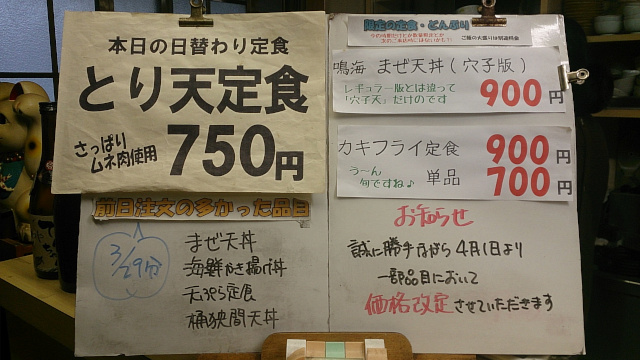 本日の日替わり定食
とり天定食
さっぱり
ムネ肉使用
750円
前日注文の多かった品目
3/29分
まぜ天丼
海鮮かき揚げ丼
天ぷら定食
桶狭間天丼
限定の定食・どんぶり
ご飯の大盛りは別途料金
鳴海 まぜ天丼(穴子版)
レギュラー版とは違って
「穴子天」だけのです
900円
カキフライ定食 900円
う〜ん
旬ですね♪
単品 700円
お知らせ
誠に勝手ながら4月1日より
一部品目において
価格改定させていただきます